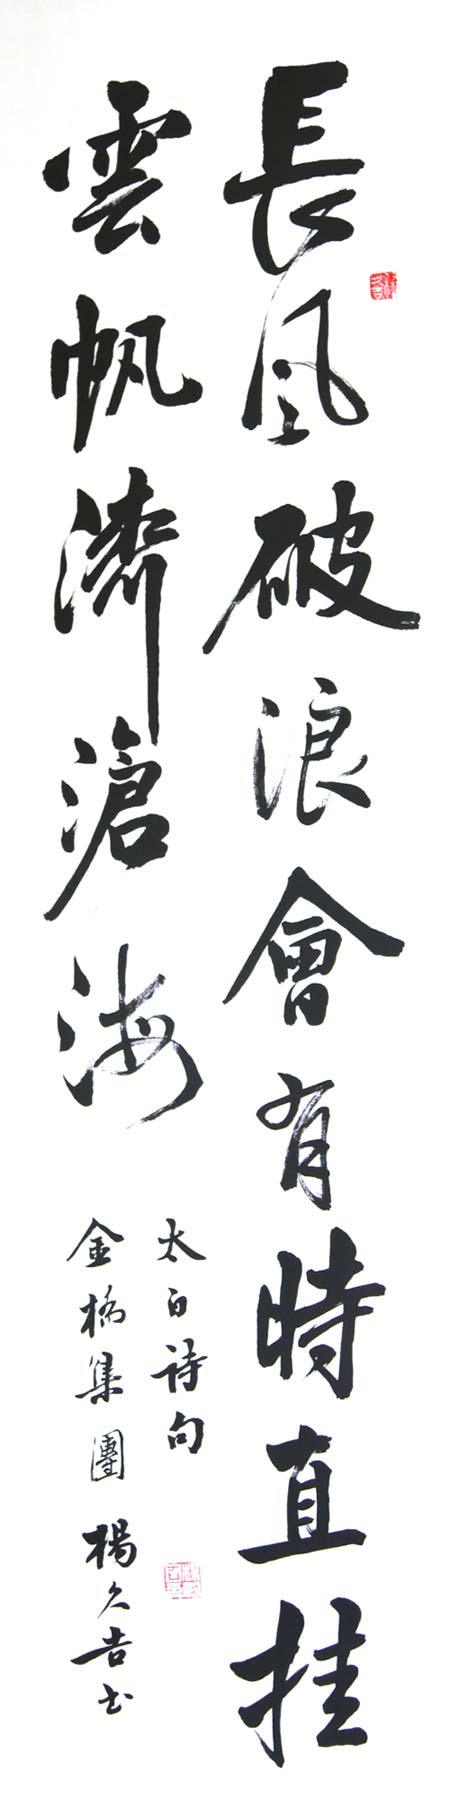 長風破浪會有時直挂
雲帆濟滄海
太白詩句
金橋集團 楊久吉书